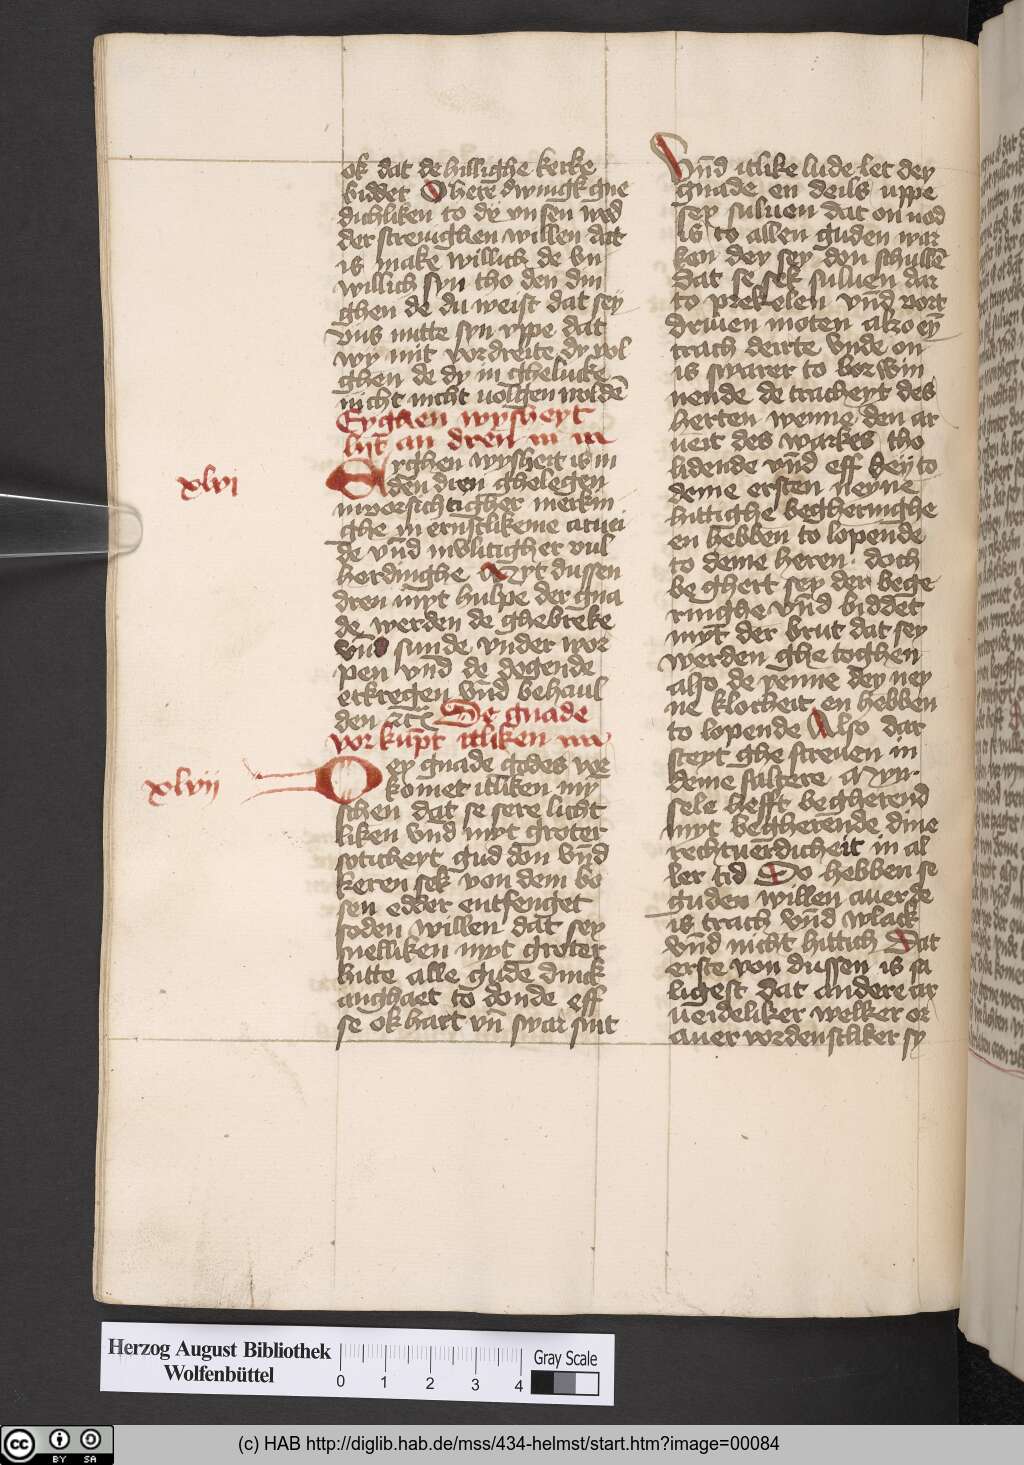 ok dat de hillighe kerke
biddet O here dwingk gne
dichliken to dy vnsen wed
derstreuighen willen dat
is make willich de vn
willich syn tho den din
ghen de du weist dat sey
vns nutte syn vppe dat
wy mit vordreite dy vol
ghen de dy in ghelucke
nicht nicht uolgen woldē
Eyghen wysheyt
lyt an dren
xlvi
Eyghen wysheit is in
den dren ghelegen
in vorsichtigher merkin
ghe in ernstliker
de vnd in vlitigher vul
herdinghe Myt dussen
dren myt hulpe der gna
de werden de ghebreke
vnd sunde vnder wor
pen vnd de dogende
erkregen vnd behaul
den
De gnade
vorkūpt itliken
xlvii
Dey gnade godes vor
komet itliken my
schen dat se sere licht
liken vnd myt groter
soticheyt gud don vnd
keren sek von dem bo
sen edder entfenget
soden willen dat sey
snelliken myt groter
hitte alle gude dinck
anghaet to donde eff
se ok hart vn̄ swar sint
Vnd itlike lude let dey
gnade en deils vppe
sey suluen dat on nod
is to allen guden war
ken dey sey don schullē
dat se sek suluen dar
to prekelen vnd vort
driuen moten alzo eȳ
trach deirte vnde on
is swarer to vorwin
nende de tracheyt des
herten wenne den ar
ueit des warkes tho
lidende vnd eff dey to
deme ersten neyne
hittighe begheringhe
en hebben to lopende
to deme heren doch
beghert sey der bege
ringhe vnd biddet
myt der brut dat sey
werden ghetoghen
also de yenne dey ney
ne klocheit en hebben
to lopende Also dar
steyt ghescreuen in
deme saltere Myn
sele hefft begherend
myt begherende dine
rechtuerdicheit in al
ler tid Do hebben se
guden willen auer de
is trach vnd wlack
vnd nicht hittich Dat
erste von dussen is sa
ligest dat andere ar
ueideliker welker or
auer vordenstliker sy
Herzog August Bibliothek
Wolfenbüttel
0 1 2 3 4
Gray Scale
cc BY SA
(c) HAB http://diglib.hab.de/mss/434-helmst/start.htm?image=00084